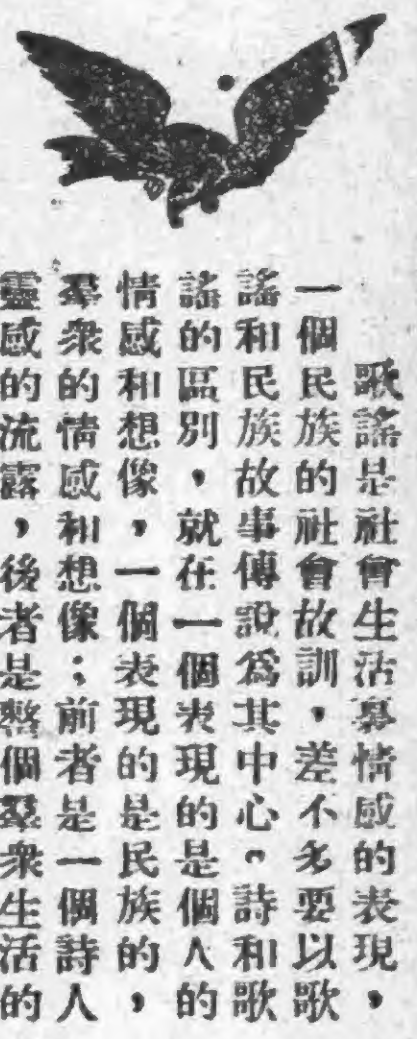 歌謠是社會生活羣情感的表現，
一個民族的社會故訓，差不多要以歌
謠和民族故事傳說爲其中心。詩和歌
謠的區別，就在一個表現的是個人的
情感和想像，一個表現的是民族的，
羣衆的情感和想像；前者是一個詩人
靈感的流露，後者是整個羣衆生活的